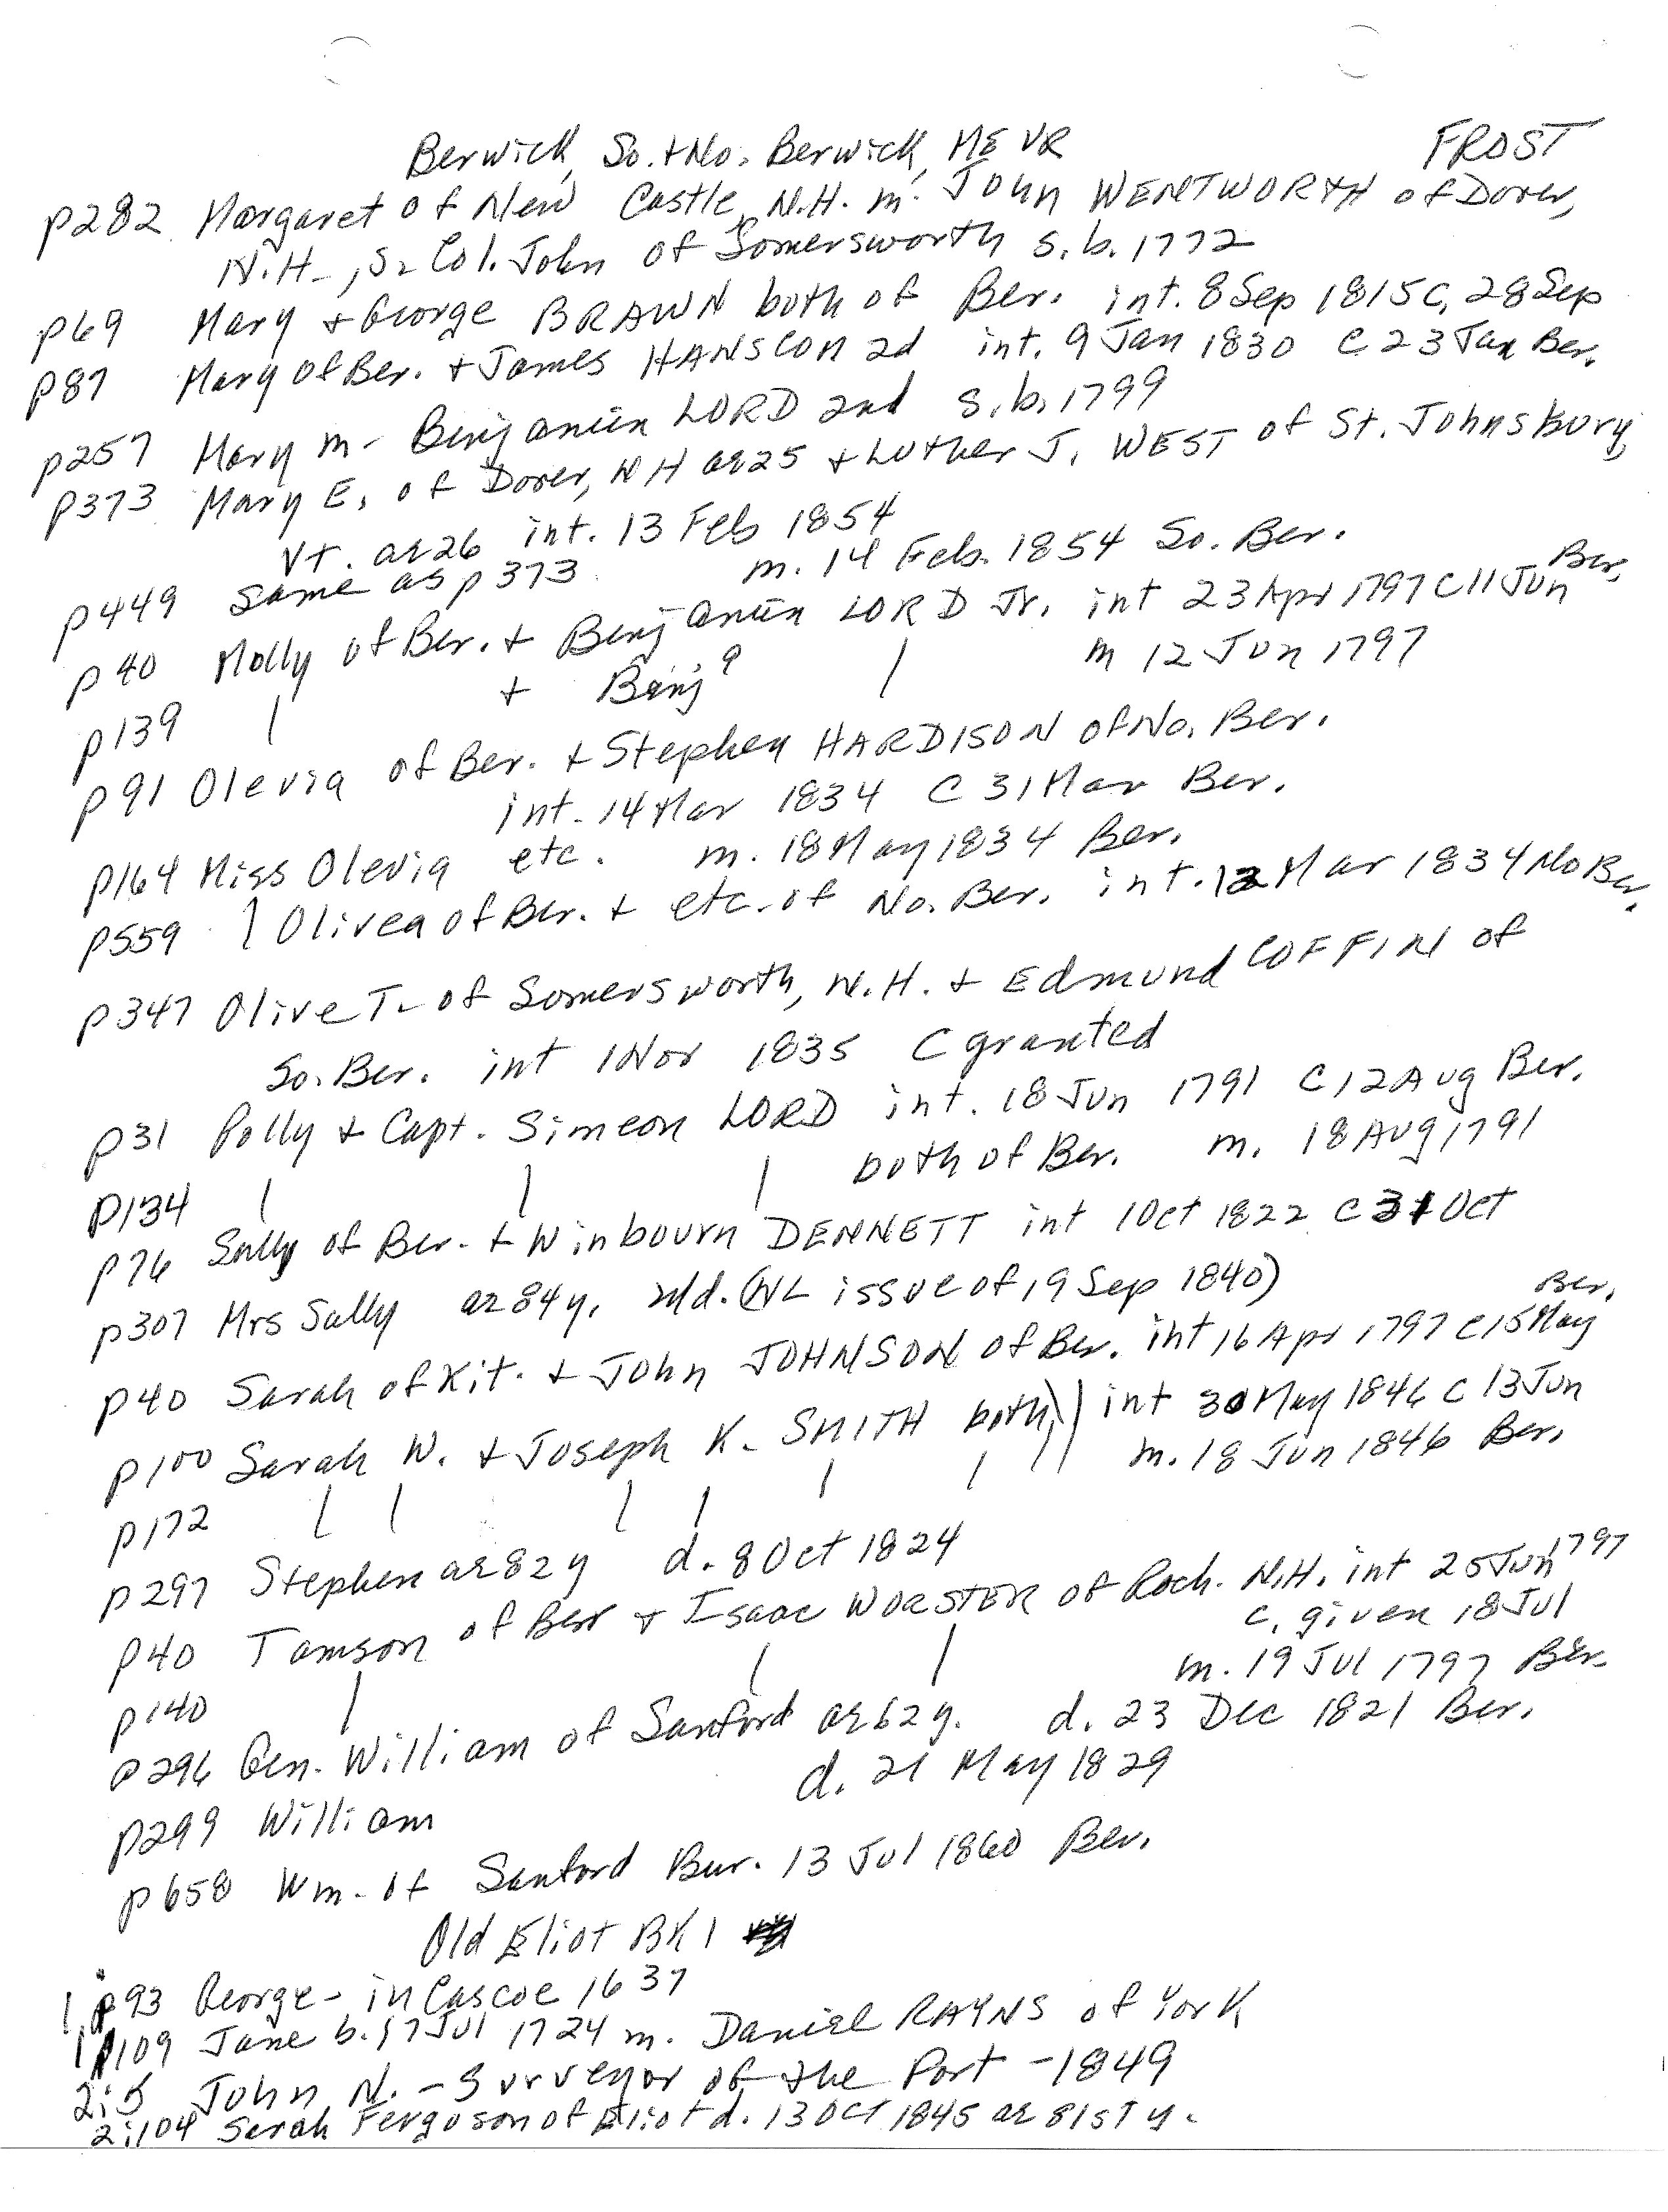 Berwick, So. + No. Berwick, ME VR FROST
p282 Margaret of New Castle, N.H. m. John WENTWORTH of Dover,
N.H., s. Col. John of Somersworth s.b. 1772
p69 Mary + George BRAWN both of Ber. int. 8 Sep 1815 C, 28 Sep
p87 Mary of Ber. + James HANSCOM 2d int. 9 Jan 1830 C 23 Jan Ber.
p257 Mary m. Benjamin LORD 2nd s.b. 1799
p373 Mary E. of Dover, NH ae 25 + Luther J. WEST of St. Johnsbury,
Vt. ae 26 int. 13 Feb 1854
p449 same as p373 m. 14 Feb. 1854 So. Ber.
p40 Molly of Ber. + Benjamin LORD Jr. int 23 Apr 1797 C 11 Jun Ber.
p139 | + Benj | m 12 Jun 1797
p91 Olevia of Ber. + Stephen HARDISON of No. Ber.
int. 14 Mar 1834 C 31 Mar Ber.
p164 Miss Olevia etc. m. 18 May 1834 Ber.
p559 Olivea of Ber. + etc. of No. Ber. int. 12 Mar 1834 No Ber.
p347 Olive T. of Somersworth, N.H. + Edmund COFFIN of
So. Ber. int 1 Nov 1835 C granted
p31 Polly + Capt. Simeon LORD int. 18 Jun 1791 C 12 Aug Ber.
p134 | | | both of Ber. m. 18 Aug 1791
p76 Sally of Ber. + Winbourn DENNETT int 1 Oct 1822 C 31 Oct
p307 Mrs Sally ae 84y. n/d. (NL issue of 19 Sep 1840)
p40 Sarah of Kit. + John JOHNSON of Ber. int 16 Apr 1797 C 15 May Ber.
p100 Sarah W. + Joseph K. SMITH both int 30 May 1846 C 13 Jun
p172 | | | | | | m. 18 Jun 1846 Ber.
p297 Stephen ae 82 y d. 8 Oct 1824
p40 Tamson of Ber + Isaac WORSTER of Roch. N.H. int 25 Jun 1797
c. given 18 Jul
p140 | | | m. 19 Jul 1797 Ber.
p296 Gen. William of Sanford ae 62 y. d. 23 Dec 1821 Ber.
p299 William d. 21 May 1829
p658 Wm. of Sanford Bur. 13 Jul 1860 Ber.
Old Eliot BK 1
1, p93 George - in Cascoe 1637
1 p109 Jane b. 17 Jul 1724 m. Daniel RAYNS of York
2:5 John N. - Surveyor of the Port - 1849
2:104 Serah Ferguson of Eliot d. 13 Oct 1845 ae 81st y.